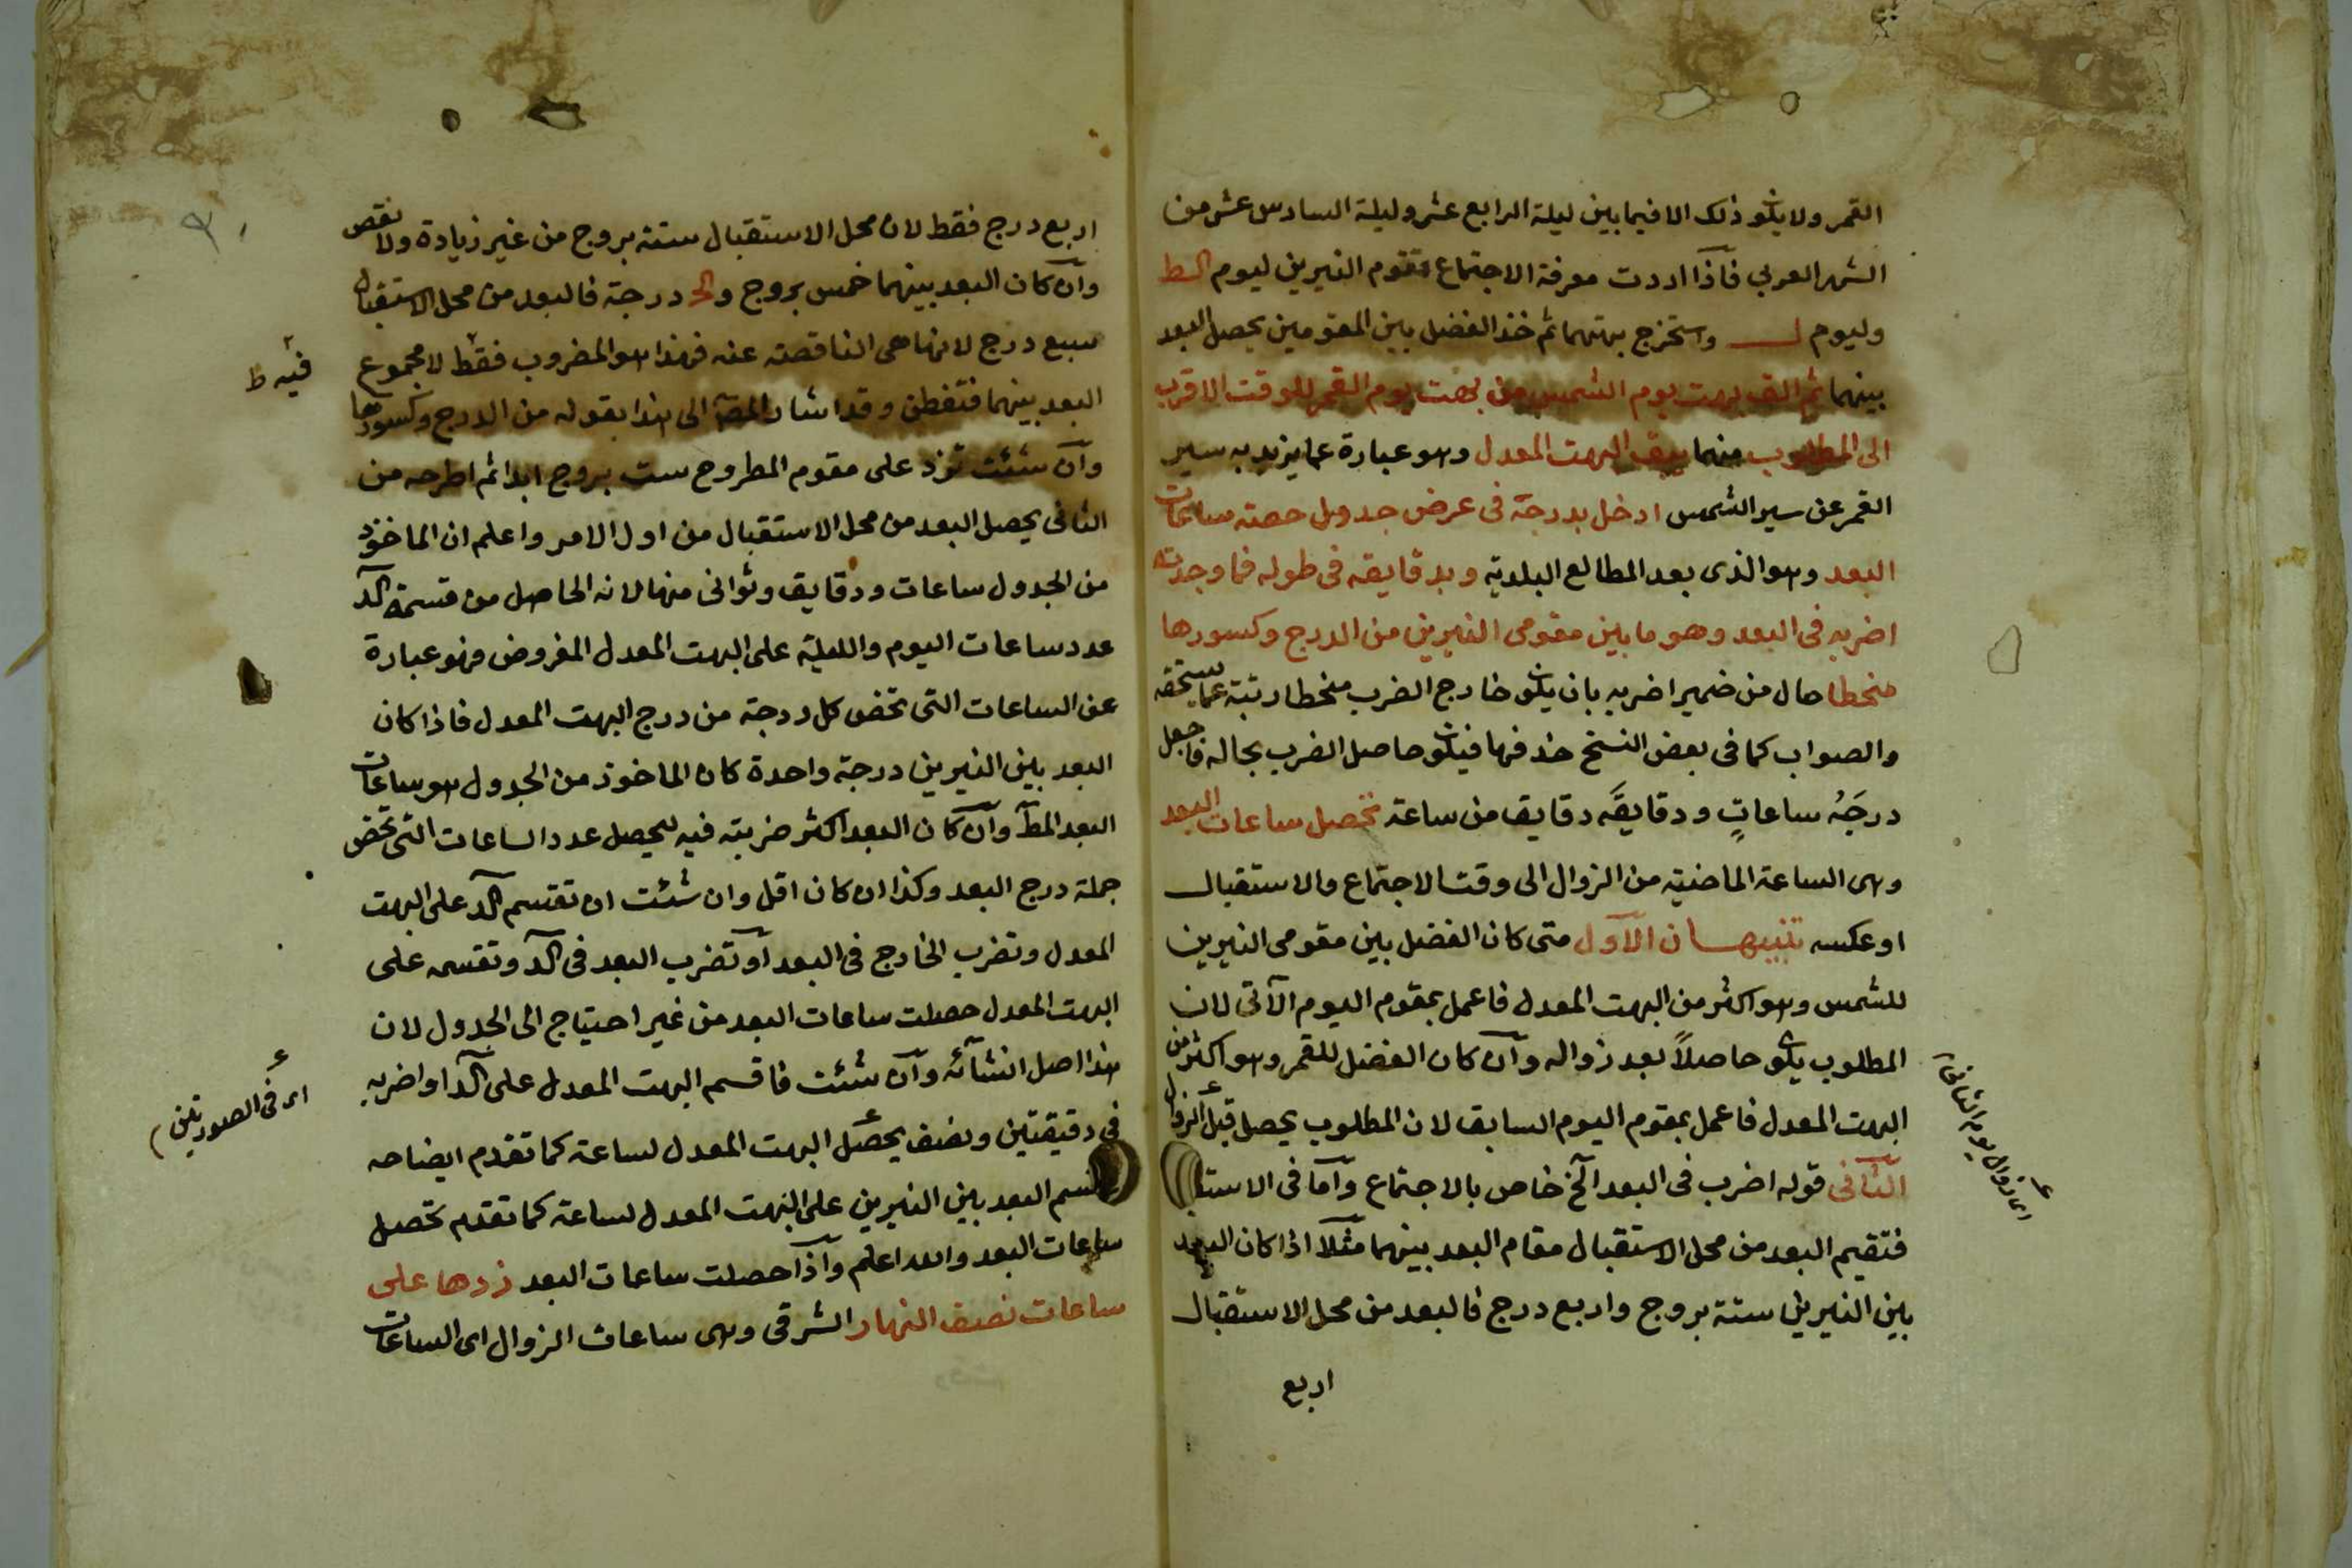 القمر ولا يكون ذلك الا فيما بين ليلة الرابع عشر وليلة السادس عشر من
الشهر العربي فاذا اردت معرفة الاجتماع فقوم النيرين ليوم الـط
وليوم ل واستخرج بهتهما ثم خذ الفضل بين المقومين يحصل البعد
بينهما ثم الق بهت يوم الشمس من بهت يوم القمر للوقت الاقرب
الى المطلوب منهما يبق البهت المعدل وهو عبارة عما يزيد به سير
القمر عن سير الشمس ادخل بدرجة فى عرض جدول حصته ساعات
البعد وهو الذى بعد المطالع البلدية وبدقايقه فى طوله فما وجدته
اضربه فى البعد وهو ما بين مقومى النيرين من الدرج وكسورها
منحطا حال من ضمير اضربه بان يكون خارج الضرب منحطا رتبة عما يستحقه
والصواب كما فى بعض النسخ حذفها فيكون حاصل الضرب بحاله فاجعل
درجَهُ ساعاتٍ ودقايقَه دقايق من ساعة تحصل ساعات البعد
وهى الساعة الماضية من الزوال الى وقت الاجتماع والاستقبال
او عكسه تنبيهان الاول متى كان الفضل بين مقومى النيرين
للشمس وهو اكثر من البهت المعدل فاعمل بمقوم اليوم الآتى لان
المطلوب يكون حاصلاً بعد زواله وان كان الفضل للقمر وهو اكثر من
البهت المعدل فاعمل بمقوم اليوم السابق لان المطلوب يحصل قبل الزوال
الثانى قوله اضرب فى البعد الخ خاص بالاجتماع واما فى الاستقبال
فتقيم البعد من محل الاستقبال مقام البعد بينهما مثلا اذا كان البعد
بين النيرين ستة بروج واربع درج فالبعد من محل الاستقبال
اربع
اربع درج فقط لان محل الاستقبال ستة بروج من غير زيادة ولا نقص
وان كان البعد بينهما خمس بروج والى درجة فالبعد من محل الاستقبال
سبع درج لانها هى الناقصة عنه فهذا هو المضروب فقط لا مجموع
فيه ط
البعد بينهما فتفطن وقد اشار المص الى هذا بقوله من الدرج وكسورها
وان شئت تزد على مقوم المطروح ست بروج ابدا ثم اطرحه من
الثانى يحصل البعد من محل الاستقبال من اول الامر واعلم ان الماخوذ
من الجدول ساعات ودقايق وثوانى منها لانه الحاصل من قسمة الكد
عدد ساعات اليوم والليلة على البهت المعدل المفروض فهو عبارة
عن الساعات التى تخص كل درجة من درج البهت المعدل فاذا كان
البعد بين النيرين درجة واحدة كان الماخوذ من الجدول هو ساعات
البعد المط وان كان البعد اكثر ضربته فيه ليحصل عدد الساعات التى تخص
جملة درج البعد وكذا ان كان اقل وان شئت ان تقسم الكد على البهت
المعدل وتضرب الخارج فى البعد او تضرب البعد فى الكد وتقسمه على
البهت المعدل حصلت ساعات البعد من غير احتياج الى الجدول لان
هذا اصل انشائه وان شئت فاقسم البهت المعدل على الكد او اضربه
اى فى الصورتين
فى دقيقتين ونصف يحصل البهت المعدل لساعة كما تقدم ايضاحه
البعد بين النيرين على البهت المعدل لساعة كما تقدم تحصل
ساعات البعد والله اعلم واذا حصلت ساعات البعد زدها على
ساعات نصف النهار الشرقى وهى ساعات الزوال اى الساعات